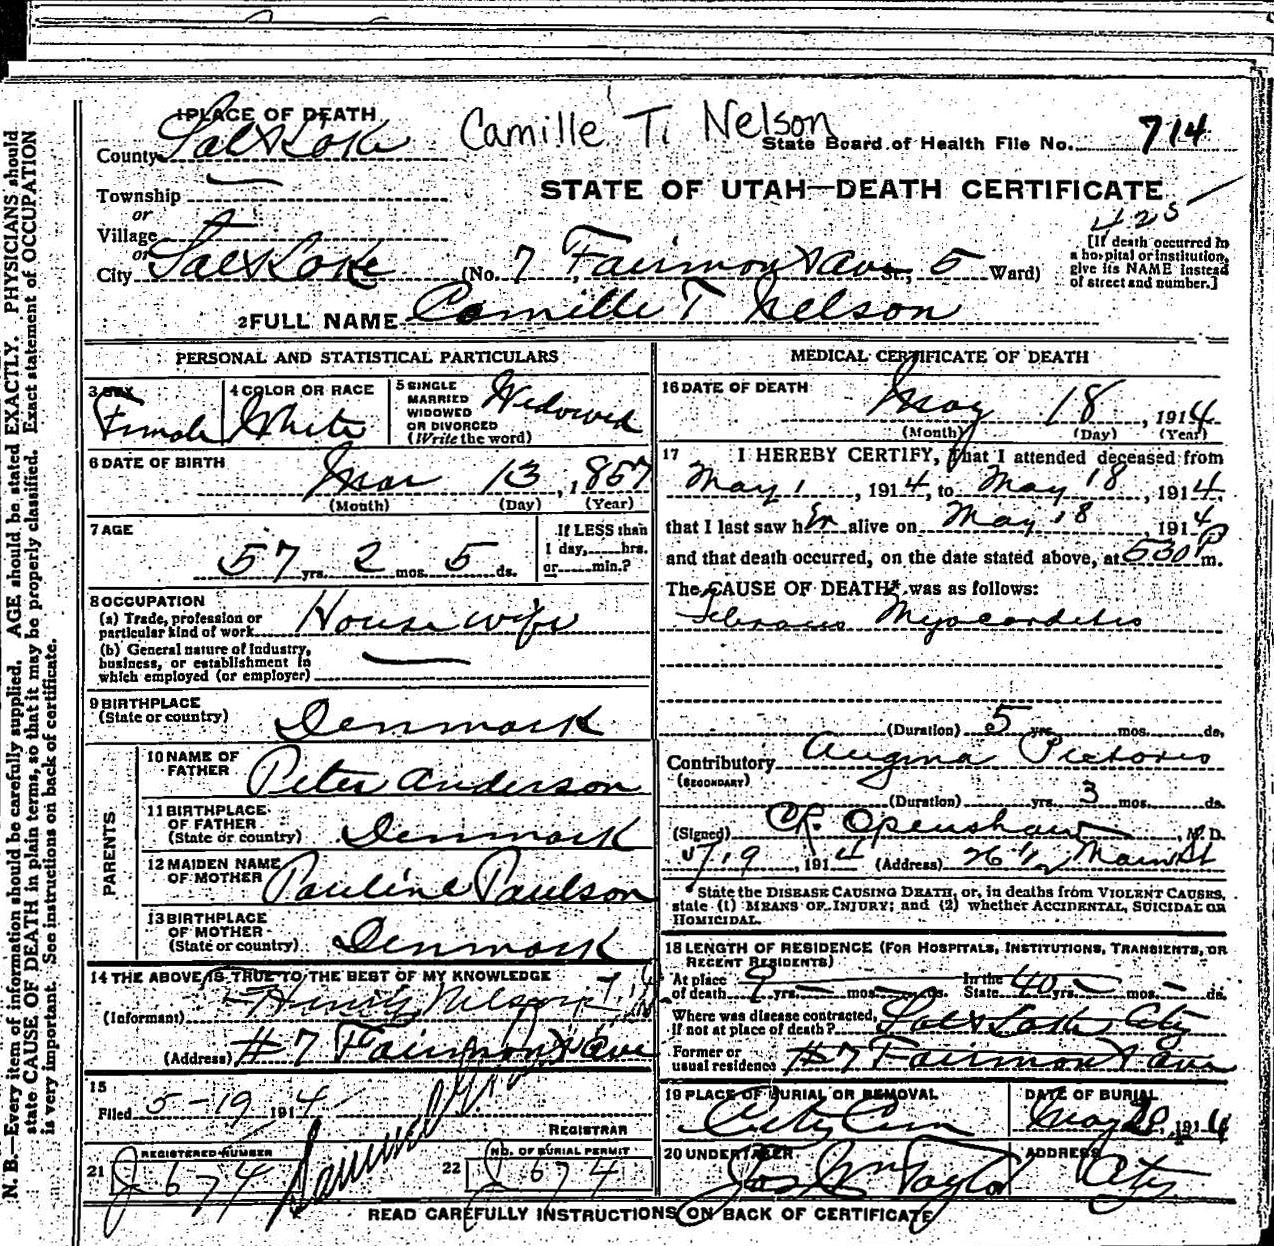 1 PLACE OF DEATH
Camille T. Nelson
County Salt Lake
State Board of Health File No. 714
Township
STATE OF UTAH—DEATH CERTIFICATE
or
Village
425
[If death occurred in a hospital or institution, give its NAME instead of street and number.]
or
City Salt Lake (No. 7 Fairmont Ave St., 5 Ward)
2 FULL NAME Camille T Nelson
PERSONAL AND STATISTICAL PARTICULARS
3 SEX Female
4 COLOR OR RACE White
5 SINGLE MARRIED WIDOWED OR DIVORCED (Write the word) Widowed
6 DATE OF BIRTH Mar 13, 1857
(Month) (Day) (Year)
7 AGE 57 yrs. 2 mos. 5 ds.
If LESS than 1 day, hrs. or min.?
8 OCCUPATION
(a) Trade, profession or particular kind of work Housewife
(b) General nature of Industry, business, or establishment in which employed (or employer)
9 BIRTHPLACE (State or country) Denmark
PARENTS
10 NAME OF FATHER Peter Anderson
11 BIRTHPLACE OF FATHER (State or country) Denmark
12 MAIDEN NAME OF MOTHER Pauline Paulson
13 BIRTHPLACE OF MOTHER (State or country) Denmark
14 THE ABOVE IS TRUE TO THE BEST OF MY KNOWLEDGE
(Informant) Henry Nelson
(Address) #7 Fairmont Ave
15
Filed 5-19 1914
REGISTRAR
21 REGISTERED NUMBER J 674
22 NO. OF BURIAL PERMIT J 674
MEDICAL CERTIFICATE OF DEATH
16 DATE OF DEATH May 18, 1914
(Month) (Day) (Year)
17 I HEREBY CERTIFY, that I attended deceased from
May 1, 1914, to May 18, 1914.
that I last saw her alive on May 18 1914
and that death occurred, on the date stated above, at 530 P m.
The CAUSE OF DEATH* was as follows:
Fibrous Myocarditis
(Duration) 5 yrs. mos. ds.
Contributory Angina Pictoris
(SECONDARY)
(Duration) yrs. 3 mos. ds.
(Signed) CR. Openshaw, M.D.
19, 1914 (Address) 26 1/2 Main St
State the DISEASE CAUSING DEATH, or, in deaths from VIOLENT CAUSES, state (1) MEANS OF INJURY; and (2) whether ACCIDENTAL, SUICIDAL OR HOMICIDAL.
18 LENGTH OF RESIDENCE (FOR HOSPITALS, INSTITUTIONS, TRANSIENTS, OR RECENT RESIDENTS)
At place of death 9 yrs. mos. ds. In the State 40 yrs. mos. ds.
Where was disease contracted, if not at place of death? Salt Lake City
Former or usual residence #7 Fairmont Ave
19 PLACE OF BURIAL OR REMOVAL City Cem
DATE OF BURIAL May 20, 1914
20 UNDERTAKER Jos Wm Taylor
ADDRESS City
READ CAREFULLY INSTRUCTIONS ON BACK OF CERTIFICATE
N. B.—Every item of information should be carefully supplied. AGE should be stated EXACTLY. PHYSICIANS should
state CAUSE OF DEATH in plain terms, so that it may be properly classified. Exact statement of OCCUPATION
is very important. See instructions on back of certificate.